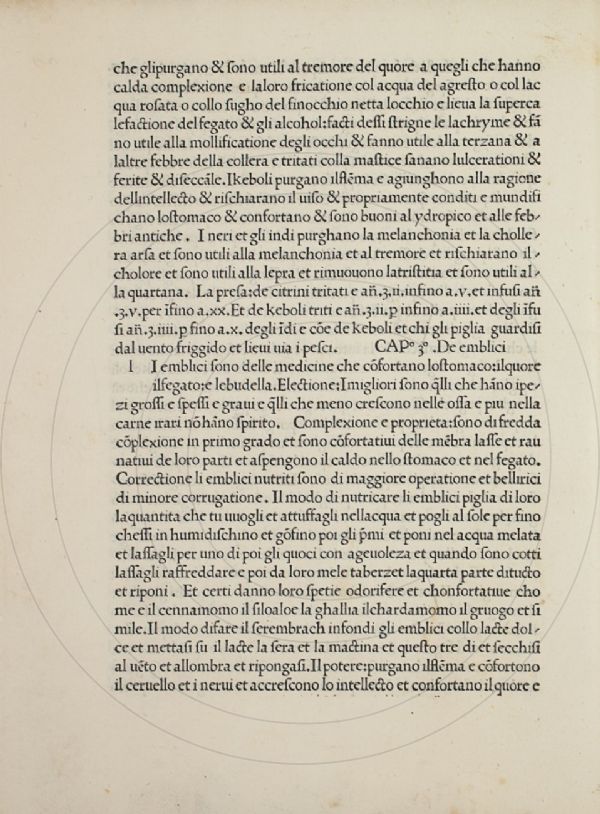 che glipurgano & sono utili al tremore del quore a quegli che hanno
calda complexione e laloro fricatione col acqua del agresto o col lac
qua rosata o collo sugho del finocchio netta locchio e lieua la superca
lefactione del fegato & gli alcohol:facti dessi strigne le lachryme & fā
no utile alla mollificatione degli occhi & fanno utile alla terzana & a
laltre febbre della collera e tritati colla mastice sanano lulcerationi &
ferite & diseccāle.Ikeboli purgano ilflēma e agiunghono alla ragione
dellintellecto & rischiarano il uiso & propriamente conditi e mundifi
chano lostomaco & confortano & sono buoni al ydropico et alle feb-
bri antiche. I neri et gli indi purghano la melanchonia et la cholle-
ra arsa et sono utili alla melanchonia et al tremore et rischiarano il-
cholore et sono utili alla lepra et rimuouono latristitia et sono utili al-
la quartana. La presa:de citrini tritati e añ.ʒ.ii.infino a.v.et infusi añ
.ʒ.v.per īfino a.xx.Et de keboli triti e añ.ʒ.ii.p infino a.iiii.et degli īfu
si añ.ʒ.iiii.p fino a.x.degli īdi e cōe de keboli et chi gli piglia guardisi
dal uento friggido et lieui uia i pesci. CAP° 3° .De emblici
I I emblici sono delle medicine che cōfortano lostomaco:ilquore
ilfegato:e lebudella.Electione:Imigliori sono q̄lli che hāno ipe-
zi grossi e spessi e graui e q̄lli che meno crescono nelle ossa e piu nella
carne irari nō hāno spirito. Complexione e proprieta:sono di fredda
cōplexione in primo grado et sono cōfortatiui delle mēbra lasse et rau
natiui de loro parti et aspengono il caldo nello stomaco et nel fegato.
Correctione li emblici nutriti sono di maggiore operatione et bellirici
di minore corrugatione. Il modo di nutricare li emblici piglia di loro
laquantita che tu uuogli et attuffagli nellacqua et pogli al sole per fino
chessi in humidischino et gōfino poi gli p̄mi et poni nel acqua melata
et lassagli per uno di poi gli quoci con ageuoleza et quando sono cotti
lassagli raffreddare e poi da loro mele taberzet laquarta parte ditucto
et riponi. Et certi danno loro spetie odorifere et chonfortatiue cho
me e il cennamomo il siloaloe la ghallia ilchardamomo il gruogo et si
mile.Il modo difare il serembrach infondi gli emblici collo lacte dol-
ce et mettasi su il lacte la sera et la mactina et questo tre di et secchisi
al uēto et allombra et ripongasi.Il potere:purgano ilflēma e cōfortono
il ceruello et i nerui et accrescono lo intellecto et confortano il quore e